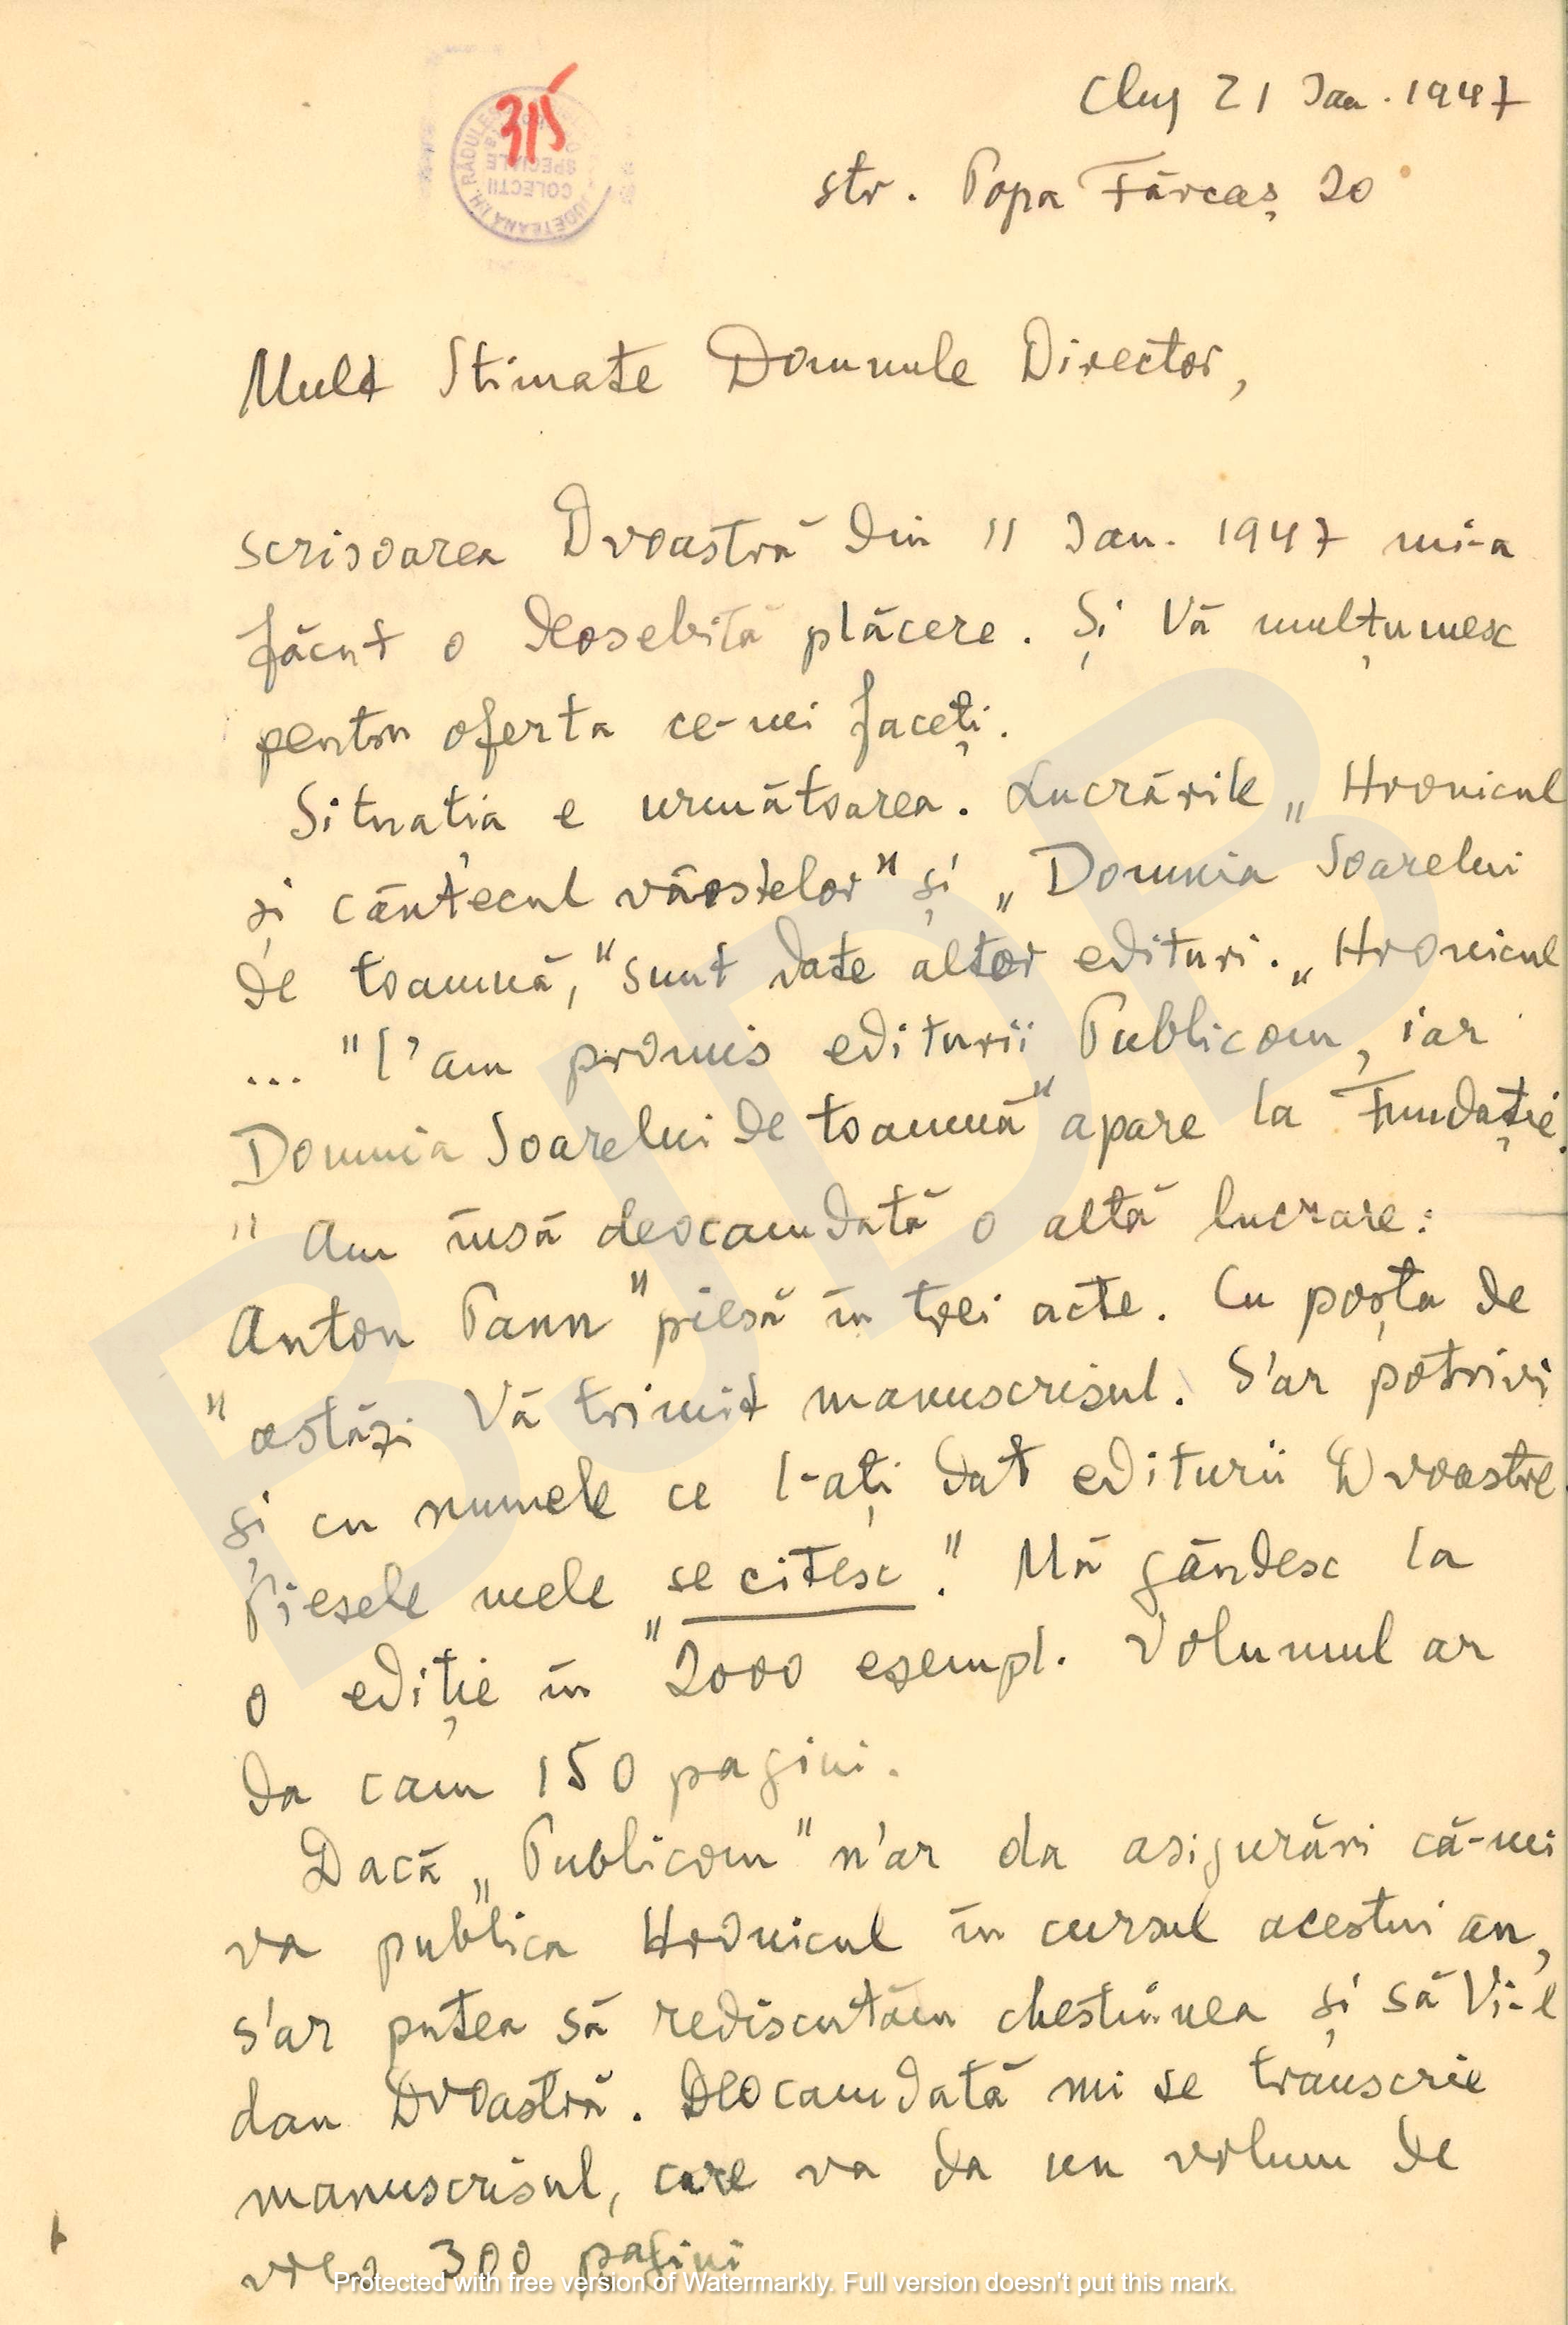 Cluj 21 Ian. 1947
str. Popa Fărcaș 20
315
COLECȚII
SPECIALE
Mult Stimate Domnule Director,
scrisoarea Dvoastră din 11 Ian. 1947 mi-a
făcut o deosebită plăcere. Și Vă mulțumesc
pentru oferta ce-mi faceți.
Situația e următoarea. Lucrările „Hronicul
și cântecul vârstelor" și „Domnia Soarelui
de toamnă," sunt date altor edituri. „Hronicul
... " l'am promis editurii Publicom, iar
Domnia Soarelui de toamnă" apare la Fundație.
" Am însă deocamdată o altă lucrare:
Anton Pann" piesă în trei acte. Cu poșta de
" astăzi Vă trimit manuscrisul. S'ar potrivi
și cu numele ce l-ați dat editurii Dvoastre.
Piesele mele „se citesc". Mă gândesc la
o ediție în 2000 exempl. Volumul ar
da cam 150 pagini.
Dacă „Publicom" n'ar da asigurări că-mi
va publica Hronicul în cursul acestui an,
s'ar putea să rediscutăm chestiunea și să Vi-l
dau Dvoastră. Deocamdată mi se transcrie
manuscrisul, care va da un volum de
vreo 300 pagini
BJDB
Protected with free version of Watermarkly. Full version doesn't put this mark.